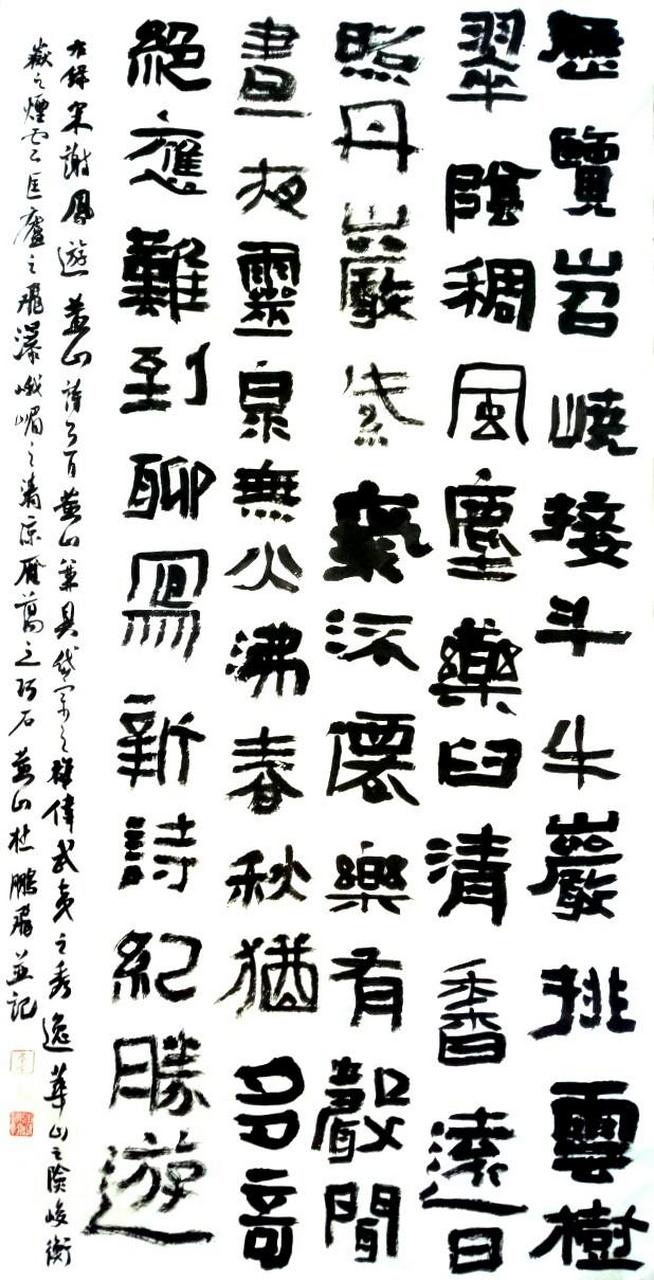 歷覽岧嶢接斗牛巖排雲樹
翠陰稠風塵藥臼清香遠日
照丹巖紫氣僊樂有聲聞
晝夜靈泉無火沸春秋猶多奇
絕應難到聊寫新詩紀勝遊
右錄宋謝鳳遊黃山詩黃山兼具岱宗之雄偉武夷之秀逸華山之險峻衡
嶽之煙雲匡廬之飛瀑峨嵋之清涼雁蕩之巧石黃山杜鵬並記